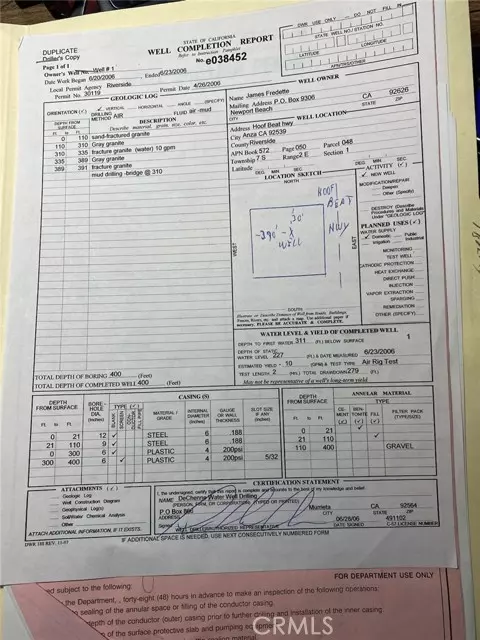 DUPLICATE
Driller's Copy
Page 1 of 1
Owner's Well No. Well # 1
Date Work Began 6/20/2006 Ended 6/23/2006
Local Permit Agency Riverside
Permit No. 30119 Permit Date 4/26/2006
STATE OF CALIFORNIA
WELL COMPLETION REPORT
Refer to Instruction Pamphlet
No. e038452
DWR USE ONLY — DO NOT FILL IN
STATE WELL NO./STATION NO.
LATITUDE LONGITUDE
APN/TRS/OTHER
GEOLOGIC LOG
ORIENTATION (✓) ✓ VERTICAL HORIZONTAL ANGLE (SPECIFY)
DRILLING METHOD AIR FLUID air -mud
DEPTH FROM SURFACE
Ft. to Ft.
DESCRIPTION
Describe material, grain size, color, etc.
0 110 sand-fractured granite
110 310 Gray granite
310 335 fracture granite (water) 10 gpm
335 389 Gray granite
389 391 fracture granite
mud drilling -bridge @ 310
WELL OWNER
Name James Fredette
Mailing Address P.O. Box 9306
Newport Beach CA 92626
CITY STATE ZIP
WELL LOCATION
Address Hoof Beat hwy
City Anza CA 92539
County Riverside
APN Book 572 Page 050 Parcel 048
Township 7 S Range 2 E Section 1
Latitude
DEG. MIN. SEC.
DEG. MIN. SEC.
LOCATION SKETCH
NORTH
WEST
EAST
SOUTH
HOOF
BEAT
HWY
30'
-390'- X
WELL
Illustrate or Describe Distance of Well from Roads, Buildings,
Fences, Rivers, etc. and attach a map. Use additional paper if
necessary. PLEASE BE ACCURATE & COMPLETE.
ACTIVITY (✓)
✓ NEW WELL
MODIFICATION/REPAIR
Deepen
Other (Specify)
DESTROY (Describe
Procedures and Materials
Under "GEOLOGIC LOG")
PLANNED USES (✓)
WATER SUPPLY
✓ Domestic Public
Irrigation Industrial
MONITORING
TEST WELL
CATHODIC PROTECTION
HEAT EXCHANGE
DIRECT PUSH
INJECTION
VAPOR EXTRACTION
SPARGING
REMEDIATION
OTHER (SPECIFY)
WATER LEVEL & YIELD OF COMPLETED WELL
DEPTH TO FIRST WATER 311 (Ft.) BELOW SURFACE
1
DEPTH OF STATIC
WATER LEVEL 227 (Ft.) & DATE MEASURED 6/23/2006
ESTIMATED YIELD 10 (GPM) & TEST TYPE Air Rig Test
TEST LENGTH 2 (Hrs.) TOTAL DRAWDOWN 279 (Ft.)
May not be representative of a well's long-term yield.
TOTAL DEPTH OF BORING 400 (Feet)
TOTAL DEPTH OF COMPLETED WELL 400 (Feet)
DEPTH FROM SURFACE
Ft. to Ft.
BORE-HOLE DIA. (Inches)
CASING (S)
TYPE (✓)
BLANK SCREEN CONDUCTOR FILL PIPE
MATERIAL / GRADE
INTERNAL DIAMETER (Inches)
GAUGE OR WALL THICKNESS
SLOT SIZE IF ANY (Inches)
0 21 12 ✓ STEEL 6 .188
21 110 9 ✓ STEEL 6 .188
0 300 6 ✓ PLASTIC 4 200psi
300 400 6 ✓ PLASTIC 4 200psi 5/32
DEPTH FROM SURFACE
Ft. to Ft.
ANNULAR MATERIAL
TYPE
CE-MENT (✓) BEN-TONITE (✓) FILL (✓) FILTER PACK (TYPE/SIZE)
0 21 ✓
21 110 ✓
110 400 GRAVEL
ATTACHMENTS (✓)
Geologic Log
Well Construction Diagram
Geophysical Log(s)
Soil/Water Chemical Analysis
Other
ATTACH ADDITIONAL INFORMATION, IF IT EXISTS.
CERTIFICATION STATEMENT
I, the undersigned, certify that this report is complete and accurate to the best of my knowledge and belief.
NAME DeChenne Water Well Drilling
(PERSON, FIRM, OR CORPORATION) (TYPED OR PRINTED)
P.O Box 880 Murrieta CA 92564
ADDRESS CITY STATE ZIP
Signed
WELL DRILLER/AUTHORIZED REPRESENTATIVE
06/28/06 491102
DATE SIGNED C-57 LICENSE NUMBER
DWR 188 REV. 11-97
IF ADDITIONAL SPACE IS NEEDED, USE NEXT CONSECUTIVELY NUMBERED FORM
FOR DEPARTMENT USE ONLY
ed subject to the following:
the Department, , forty-eight (48) hours in advance to make an inspection of the following operations:
sealing of the annular space or filling of the conductor casing.
depth of the conductor (outer) casing prior to
of the surface protective slab and pumping
CRMLS